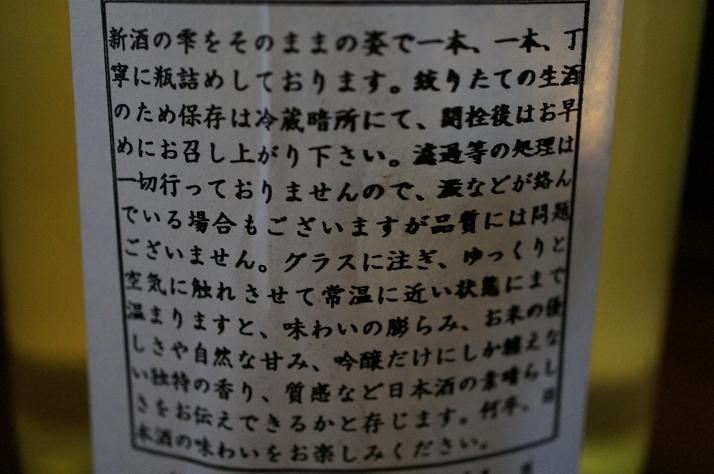 新酒の雫をそのままの姿で一本、一本、丁
寧に瓶詰めしております。絞りたての生酒
のため保存は冷蔵暗所にて、開栓後はお早
めにお召し上がり下さい。濾過等の処理は
一切行っておりませんので、澱などが絡ん
でいる場合もございますが品質には問題
ございません。グラスに注ぎ、ゆっくりと
空気に触れさせて常温に近い状態にまで
温まりますと、味わいの膨らみ、お米の優
しさや自然な甘み、吟醸だけにしか醸えな
い独特の香り、質感など日本酒の素晴らし
さをお伝えできるかと存じます。何卒、日
本酒の味わいをお楽しみください。